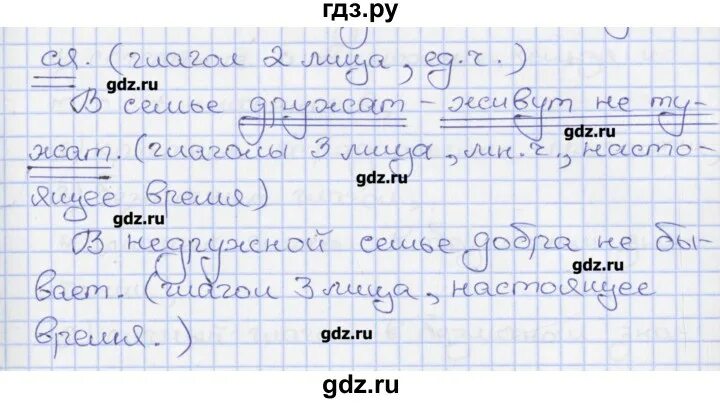 гдз.ру
ся. (глагол 2 лица, ед.ч.)
gdz.ru
В семье дружат - живут не ту-
gdz.ru
жат. (глаголы 3 лица, мн.ч., насто-
gdz.ru
ящее время)
gdz.ru
В недружной семье добра не бы-
gdz.ru
вает. (глагол 3 лица, настоящее
время.)
gdz.ru
gdz.ru